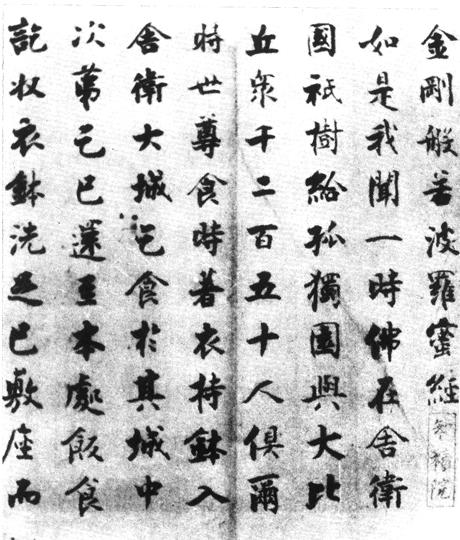 金剛般若波羅蜜經
如是我聞一時佛在舍衛
國祇樹給孤獨園與大比
丘衆千二百五十人俱爾
時世尊食時著衣持鉢入
舍衛大城乞食於其城中
次第乞已還至本處飯食
訖収衣鉢洗足已敷座而